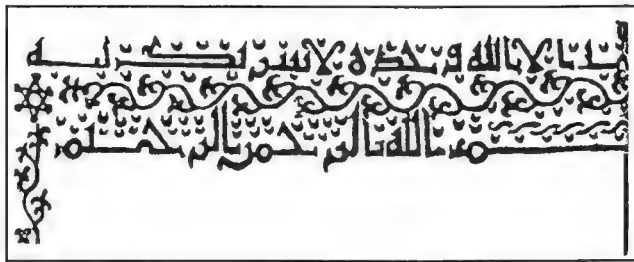 الله وحده لا شريك له
بسم الله الرحمن الرحيم